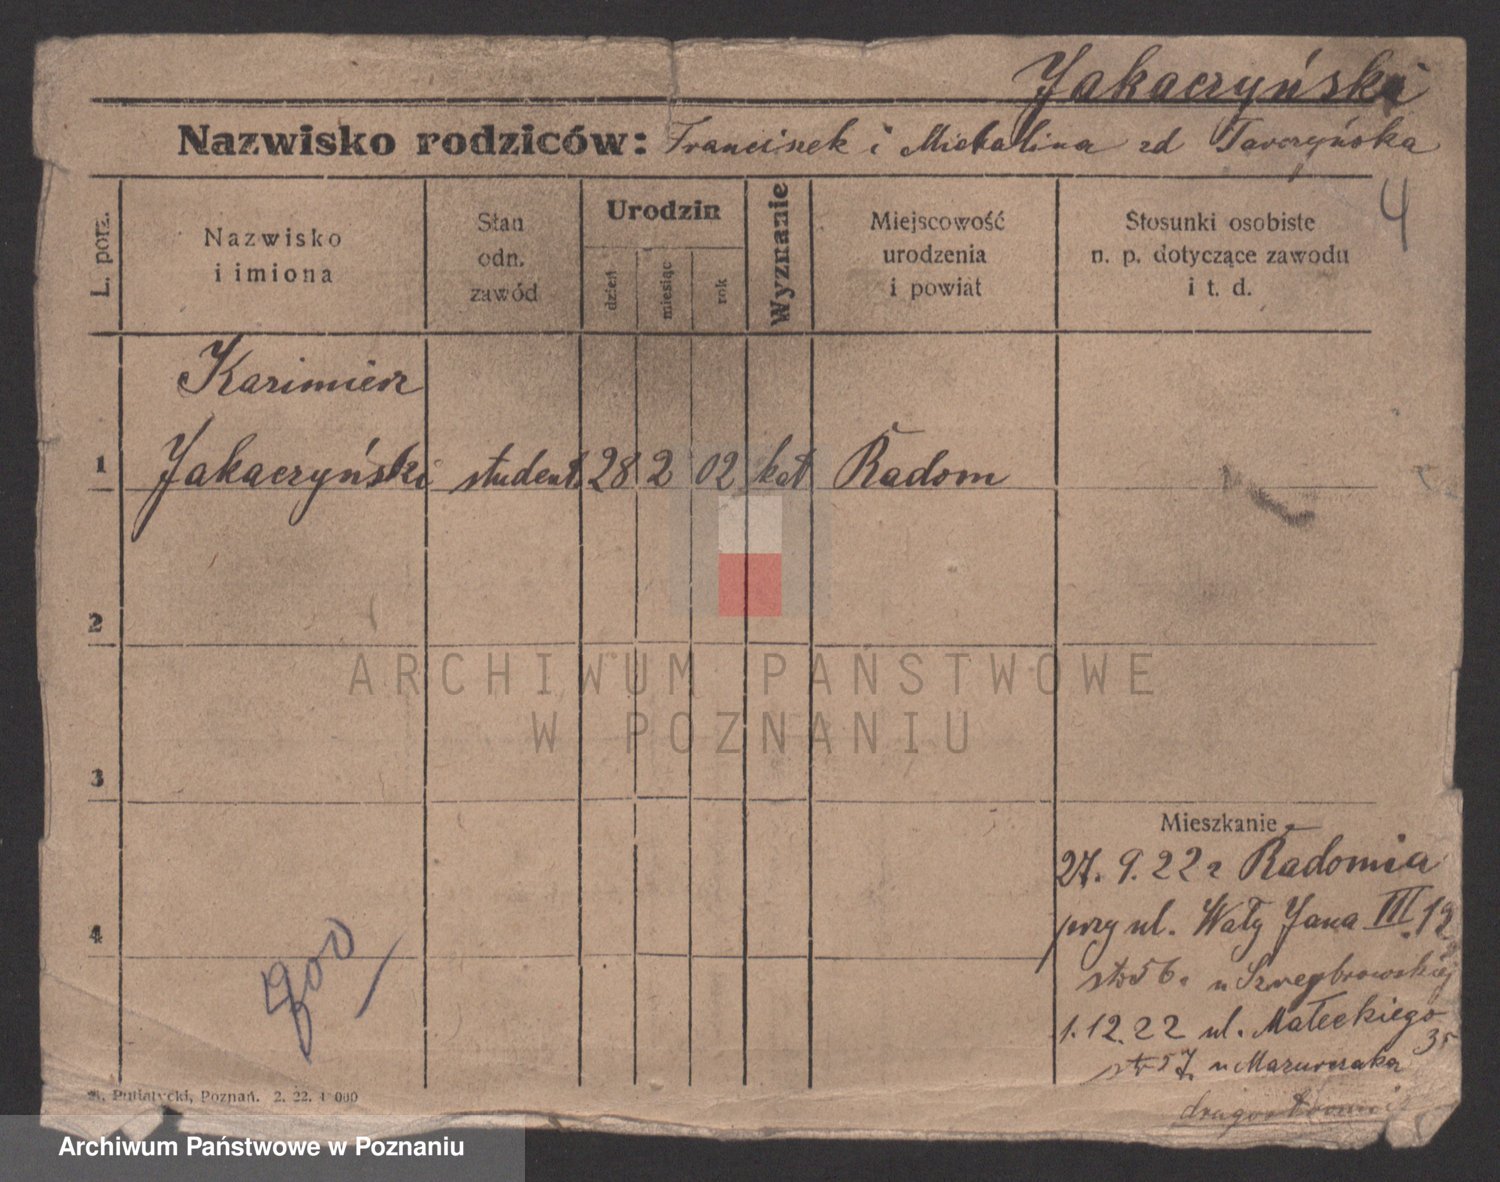 Jakaczyński
Nazwisko rodziców: Franciszek i Michalina zd Tarczyńska
4
L. porz.
Nazwisko
i imiona
Stan
odn.
zawód
Urodzin
dzień
miesiąc
rok
Wyznanie
Miejscowość
urodzenia
i powiat
Stosunki osobiste
n. p. dotyczące zawodu
i t. d.
Kazimierz
1 Jakaczyński student 28 2 02 kat Radom
2
3
4
Mieszkanie
27. 9. 22 z Radomia
przy ul. Wały Jana III. 12
str 56. u
1. 12. 22 ul. Małeckiego 35
str 57. u Mazurczaka
drugostronnie
Putiatycki, Poznań. 2. 22. 1 000
ARCHIWUM PAŃSTWOWE
W POZNANIU
Archiwum Państwowe w Poznaniu